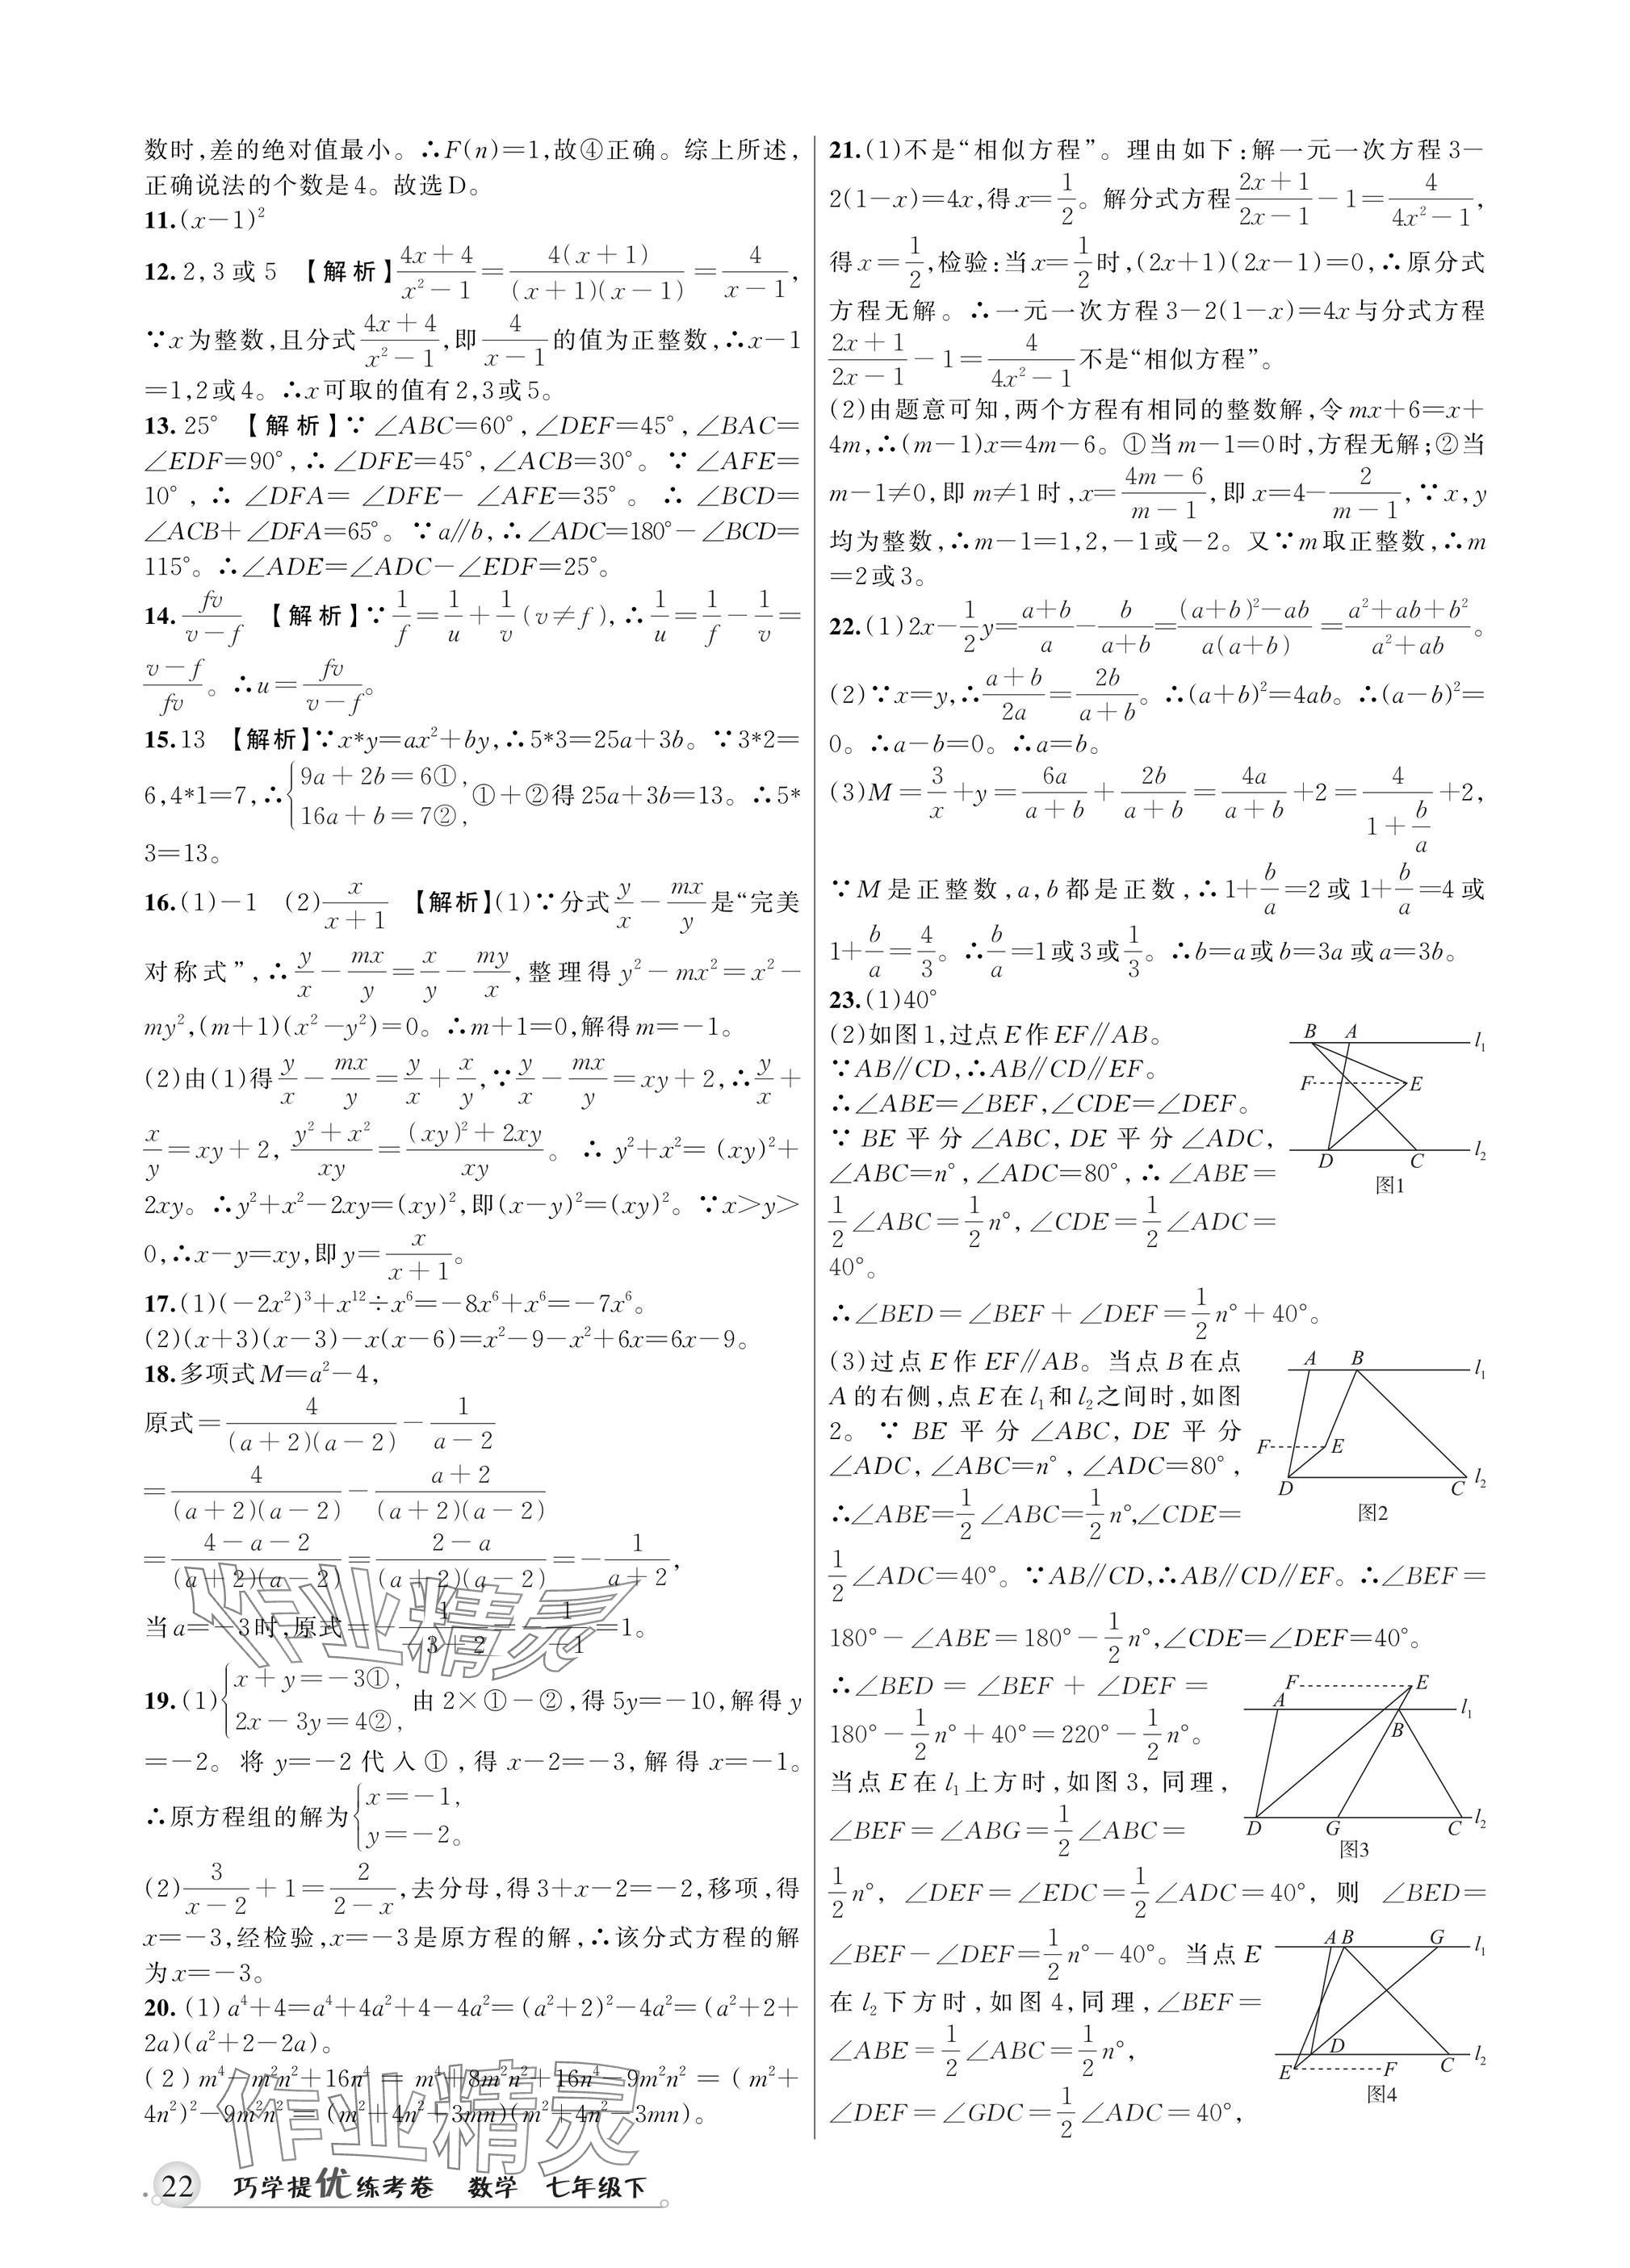 数时,差的绝对值最小。∴F(n)=1,故④正确。综上所述,
正确说法的个数是4。故选D。
11.(x-1)²
12. 2,3或5 【解析】(4x+4)/(x²-1)=4(x+1)/((x+1)(x-1))=4/(x-1),
∵x为整数,且分式(4x+4)/(x²-1),即4/(x-1)的值为正整数,∴x-1
=1,2或4。∴x可取的值有2,3或5。
13. 25° 【解析】∵∠ABC=60°,∠DEF=45°,∠BAC=
∠EDF=90°,∴∠DFE=45°,∠ACB=30°。∵∠AFE=
10°,∴∠DFA=∠DFE-∠AFE=35°。∴∠BCD=
∠ACB+∠DFA=65°。∵a∥b,∴∠ADC=180°-∠BCD=
115°。∴∠ADE=∠ADC-∠EDF=25°。
14. fv/(v-f) 【解析】∵1/f=1/u+1/v(v≠f),∴1/u=1/f-1/v=
(v-f)/fv。∴u=fv/(v-f)。
15.13 【解析】∵x*y=ax²+by,∴5*3=25a+3b。∵3*2=
6,4*1=7,∴{9a+2b=6①, 16a+b=7②, ①+②得25a+3b=13。∴5*
3=13。
16.(1)-1 (2)x/(x+1) 【解析】(1)∵分式y/x-mx/y是“完美
对称式”,∴y/x-mx/y=x/y-my/x,整理得y²-mx²=x²-
my²,(m+1)(x²-y²)=0。∴m+1=0,解得m=-1。
(2)由(1)得y/x-mx/y=y/x+x/y,∵y/x-mx/y=xy+2,∴y/x+
x/y=xy+2,(y²+x²)/xy=((xy)²+2xy)/xy。∴y²+x²=(xy)²+
2xy。∴y²+x²-2xy=(xy)²,即(x-y)²=(xy)²。∵x>y>
0,∴x-y=xy,即y=x/(x+1)。
17.(1)(-2x²)³+x¹²÷x⁶=-8x⁶+x⁶=-7x⁶。
(2)(x+3)(x-3)-x(x-6)=x²-9-x²+6x=6x-9。
18.多项式M=a²-4,
原式=4/((a+2)(a-2))-1/(a-2)
=4/((a+2)(a-2))-(a+2)/((a+2)(a-2))
=(4-a-2)/((a+2)(a-2))=(2-a)/((a+2)(a-2))=-1/(a+2),
当a=-3时,原式=-1/(-3+2)=-1/(-1)=1。
19.(1){x+y=-3①, 2x-3y=4②, 由2×①-②,得5y=-10,解得y
=-2。将y=-2代入①,得x-2=-3,解得x=-1。
∴原方程组的解为{x=-1, y=-2。
(2)3/(x-2)+1=2/(2-x),去分母,得3+x-2=-2,移项,得
x=-3,经检验,x=-3是原方程的解,∴该分式方程的解
为x=-3。
20.(1)a⁴+4=a⁴+4a²+4-4a²=(a²+2)²-4a²=(a²+2+
2a)(a²+2-2a)。
(2)m⁴-m²n²+16n⁴=m⁴+8m²n²+16n⁴-9m²n²=(m²+
4n²)²-9m²n²=(m²+4n²+3mn)(m²+4n²-3mn)。
21.(1)不是“相似方程”。理由如下:解一元一次方程3-
2(1-x)=4x,得x=1/2。解分式方程(2x+1)/(2x-1)-1=4/(4x²-1),
得x=1/2,检验:当x=1/2时,(2x+1)(2x-1)=0,∴原分式
方程无解。∴一元一次方程3-2(1-x)=4x与分式方程
(2x+1)/(2x-1)-1=4/(4x²-1)不是“相似方程”。
(2)由题意可知,两个方程有相同的整数解,令mx+6=x+
4m,∴(m-1)x=4m-6。①当m-1=0时,方程无解;②当
m-1≠0,即m≠1时,x=(4m-6)/(m-1),即x=4-2/(m-1),∵x,y
均为整数,∴m-1=1,2,-1或-2。又∵m取正整数,∴m
=2或3。
22.(1)2x-1/2y=(a+b)/a-b/(a+b)=((a+b)²-ab)/(a(a+b))=(a²+ab+b²)/(a²+ab)。
(2)∵x=y,∴(a+b)/2a=2b/(a+b)。∴(a+b)²=4ab。∴(a-b)²=
0。∴a-b=0。∴a=b。
(3)M=3/x+y=6a/(a+b)+2b/(a+b)=4a/(a+b)+2=4/(1+b/a)+2,
∵M是正整数,a,b都是正数,∴1+b/a=2或1+b/a=4或
1+b/a=4/3。∴b/a=1或3或1/3。∴b=a或b=3a或a=3b。
23.(1)40°
(2)如图1,过点E作EF∥AB。
∵AB∥CD,∴AB∥CD∥EF。
∴∠ABE=∠BEF,∠CDE=∠DEF。
∵BE平分∠ABC,DE平分∠ADC,
∠ABC=n°,∠ADC=80°,∴∠ABE=
1/2∠ABC=1/2n°,∠CDE=1/2∠ADC=
40°。
B A l₁
F E
D C l₂
图1
∴∠BED=∠BEF+∠DEF=1/2n°+40°。
(3)过点E作EF∥AB。当点B在点
A的右侧,点E在l₁和l₂之间时,如图
2。∵BE平分∠ABC,DE平分
∠ADC,∠ABC=n°,∠ADC=80°,
∴∠ABE=1/2∠ABC=1/2n°,∠CDE=
A B l₁
F E
D C l₂
图2
1/2∠ADC=40°。∵AB∥CD,∴AB∥CD∥EF。∴∠BEF=
180°-∠ABE=180°-1/2n°,∠CDE=∠DEF=40°。
∴∠BED=∠BEF+∠DEF=
180°-1/2n°+40°=220°-1/2n°。
当点E在l₁上方时,如图3,同理,
∠BEF=∠ABG=1/2∠ABC=
F E
A l₁
B
D G C l₂
图3
1/2n°,∠DEF=∠EDC=1/2∠ADC=40°,则∠BED=
∠BEF-∠DEF=1/2n°-40°。当点E
在l₂下方时,如图4,同理,∠BEF=
∠ABE=1/2∠ABC=1/2n°,
∠DEF=∠GDC=1/2∠ADC=40°,
A B G l₁
D C l₂
E F
图4
作业精灵
作业精灵
22 巧学提优练考卷 数学 七年级下